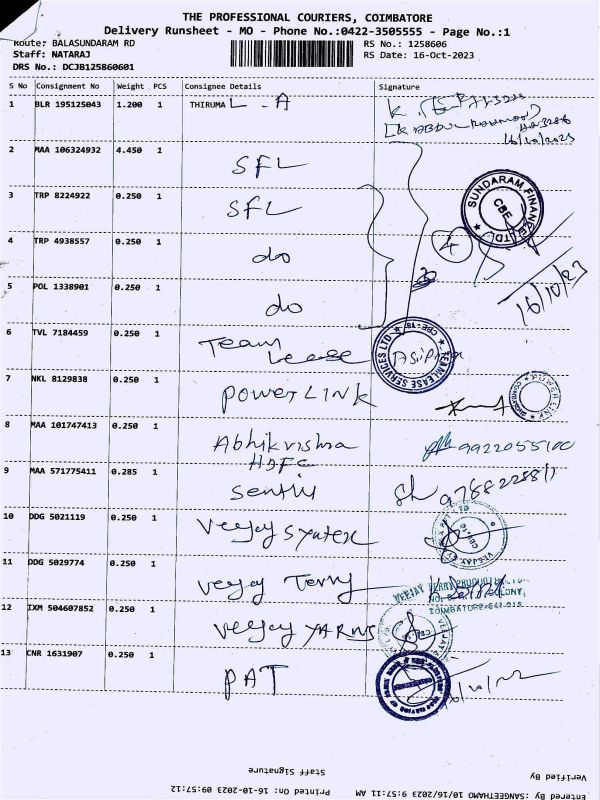 THE PROFESSIONAL COURIERS, COIMBATORE
Delivery Runsheet - MO - Phone No.:0422-3505555 - Page No.:1
Route: BALASUNDARAM RD
Staff: NATARAJ
DRS No.: DCJB125860601
RS No.: 1258606
RS Date: 16-Oct-2023
S No Consignment No Weight PCS Consignee Details Signature
1 BLR 195125043 1.200 1 THIRUMA L - A
16/10/2023
2 MAA 106324932 4.450 1 SFL
SUNDARAM FINANCE LTD. CBE
3 TRP 8224922 0.250 1 SFL
4 TRP 4938557 0.250 1 do
4
16/10/23
5 POL 1338901 0.250 1 do
6 TVL 7184459 0.250 1 Team Lease
TEAM LEASE SERVICES LTD CBE-18
7 NKL 8129838 0.250 1 POWER LINK
POWER LINK
8 MAA 101747413 0.250 1 Abhikrishna
HDFC
9922055100
9 MAA 571775411 0.285 1 Senthil
10 DDG 5021119 0.250 1 Veejay Syntex
VEEJAY
11 DDG 5029774 0.250 1 Veejay Terry
VEEJAY TERRY PRODUCTS LTD
COLONY,
COIMBATORE-641 015
12 IXM 504607852 0.250 1 Veejay YARNS
VEEJAY
13 CNR 1631907 0.250 1 PAT
Staff Signature
Verified By
Printed On: 16-10-2023 09:57:12
Entered By :SANGEETHAMO 10/16/2023 9:57:11 AM